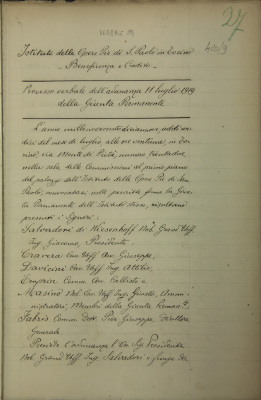 27
Istituto delle Opere Pie di S. Paolo in Torino
Beneficenza e Credito
Processo verbale dell'adunanza 11 luglio 1919
della Giunta Permanente
L'anno millenovecentodiciannove, addì un-
dici del mese di luglio, alle ore ventuna, in To-
rino, via Monte di Pietà, numero trentadue,
nella sala delle Commissioni al primo piano
del palazzo dell'Istituto delle Opere Pie di San
Paolo, convocatasi nelle prescritte forme la Giun-
ta Permanente dell'Istituto stesso, risultano
presenti i Signori:
Salvadori di Wiesenhoff Nob. Grand'Uff.
Ing. Giacomo, Presidente
Cravera Cav. Uff. Avv. Giuseppe,
Davicini Cav. Uff. Ing. Attilio,
Emprin Comm. Cav. Callisto e
Masino Nob. Cav. Uff. Ing. Giusto, Ammi-
nistratori, Membri della Giunta Perman.e
Fabris Comm. Dott. Pier Giuseppe Direttore
Generale.
Presiede l'adunanza il Sig. Presidente
Nob. Grand'Uff. Ing. Salvadori e funge da